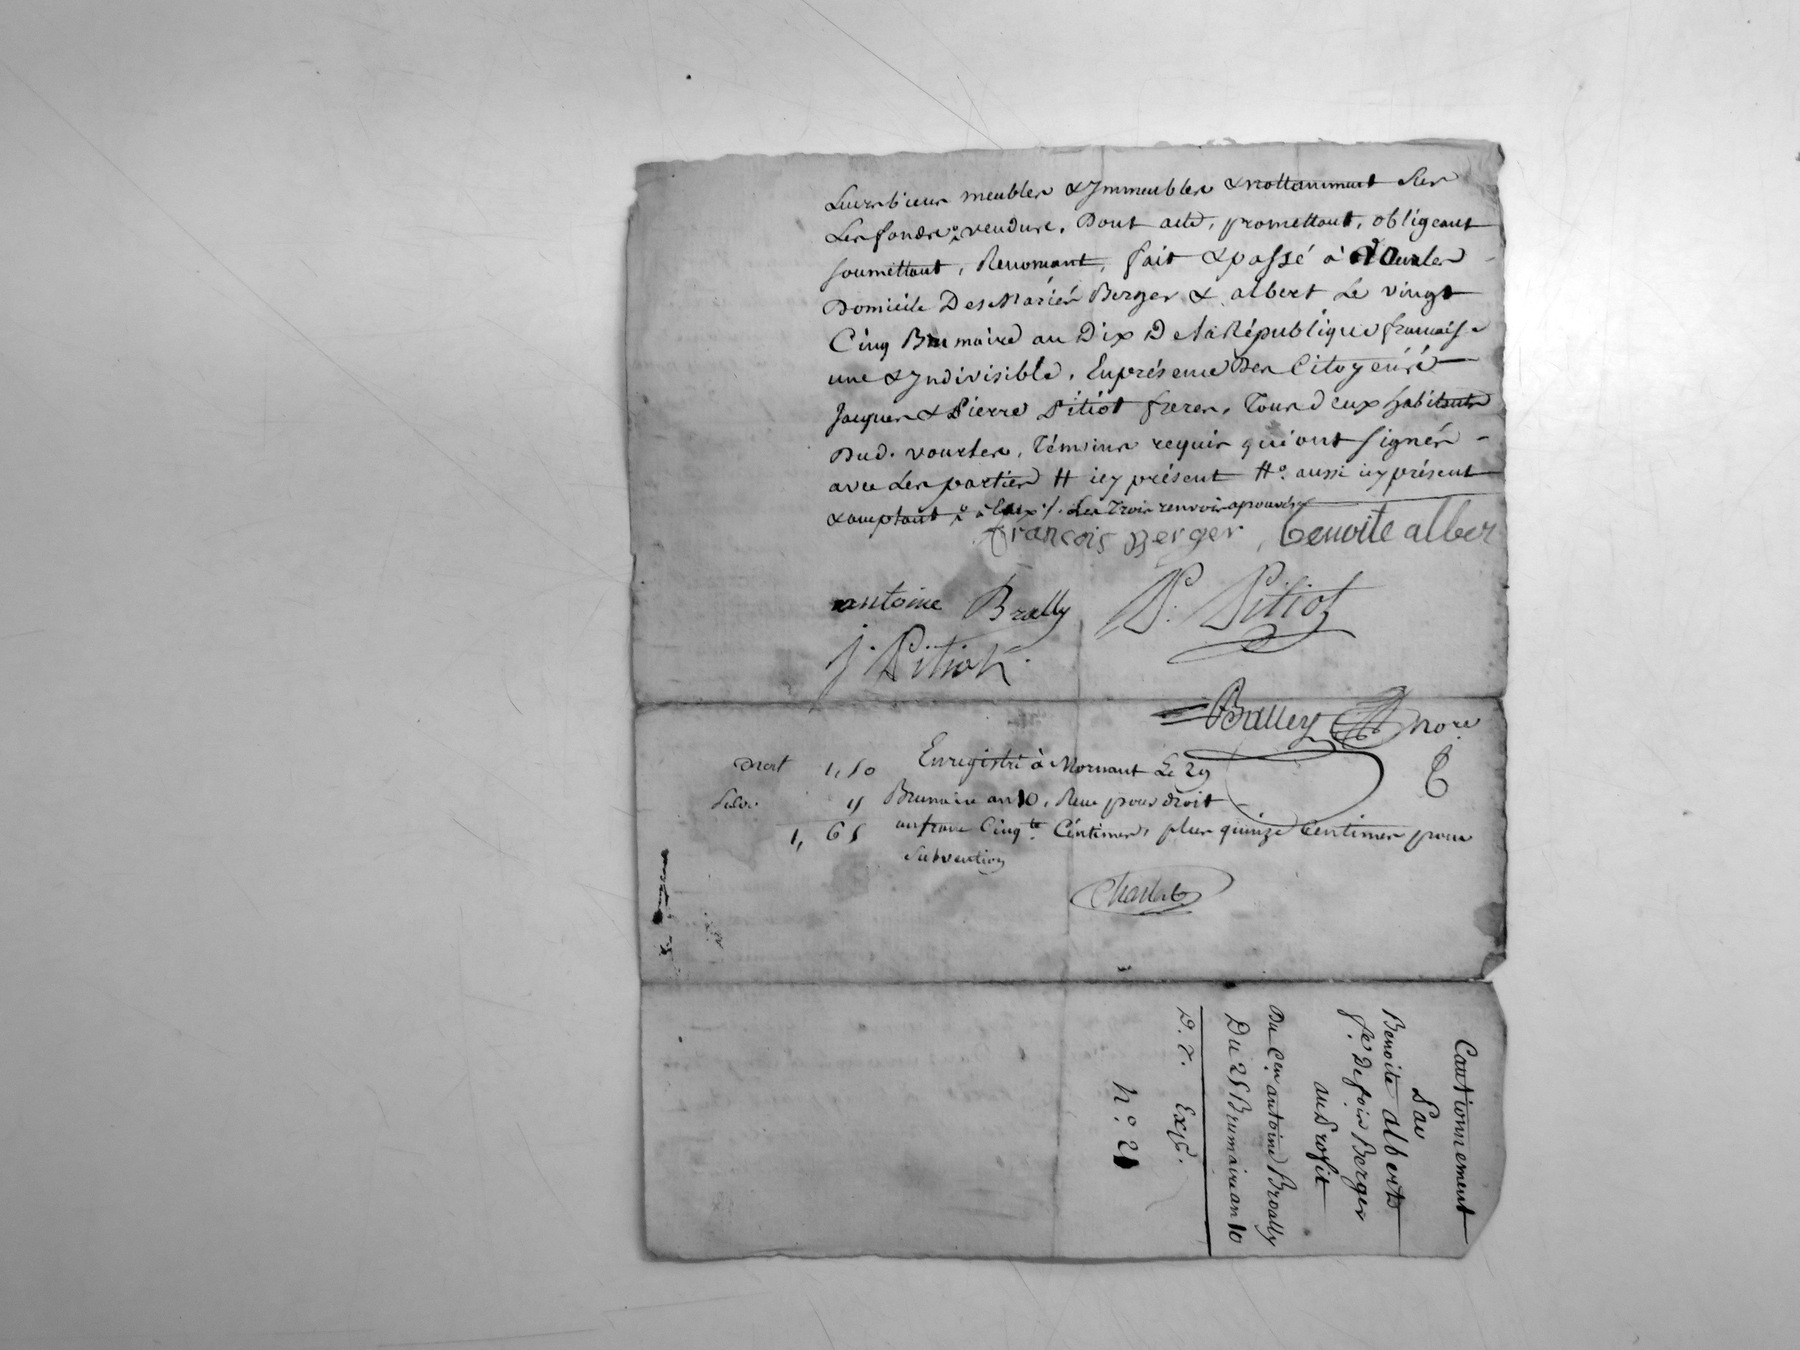 Leurs biens meubles & Immeubles & nottamment sur
Les fonds vendus. Dont acte, promettant, obligeant
soumettant, Renonçant, fait & passé à vourles
Domicile Des Mariés Berger & albert Le vingt
Cinq Brumaire an Dix De la République française
une & Indivisible. En présence Des Citoyens
Jacques & Pierre Pitiot freres, Tous deux habitants
Dud. vourles, Témoins requis qui ont signés
avec Les parties # icy présent #° aussi icy présent
& acceptant à Eux /. Les Trois renvois aprouvés
françois Berger, benoite alber
antoine Brally P. Pitiot
J. Pitiot
Balley nore
Droit 1, 50 Enregistré à Mornant Le 29
Subv. 15 Brumaire an 10, Reçu pour droit
1, 65 un franc Cinqte Centimes, plus quinze Centimes pour
Subvention
Cautionnement
Par
Benoite alberts
fe De fois Berger
au Profit
Du Cen antoine Broally
Du 25 Brumaire an 10
D. T. Exp.
N° 21